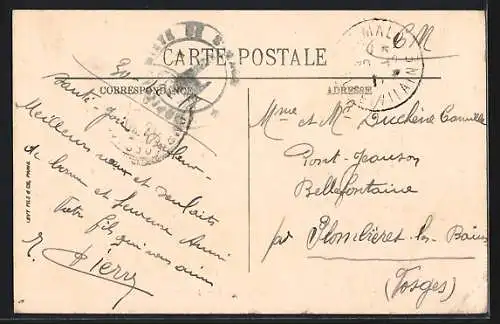 CARTE POSTALE
F.M
CORRESPONDANCE
ADRESSE
En
santé
Meilleurs vœux et souhaits
de bonne et heureuse Année
Votre fils qui vous aime
Pierre
LEVY FILS & CIE, PARIS
Mme et Mr Duchêne Camille
Pont-Jeanson
Bellefontaine
par Plombières-les-Bains
(Vosges)